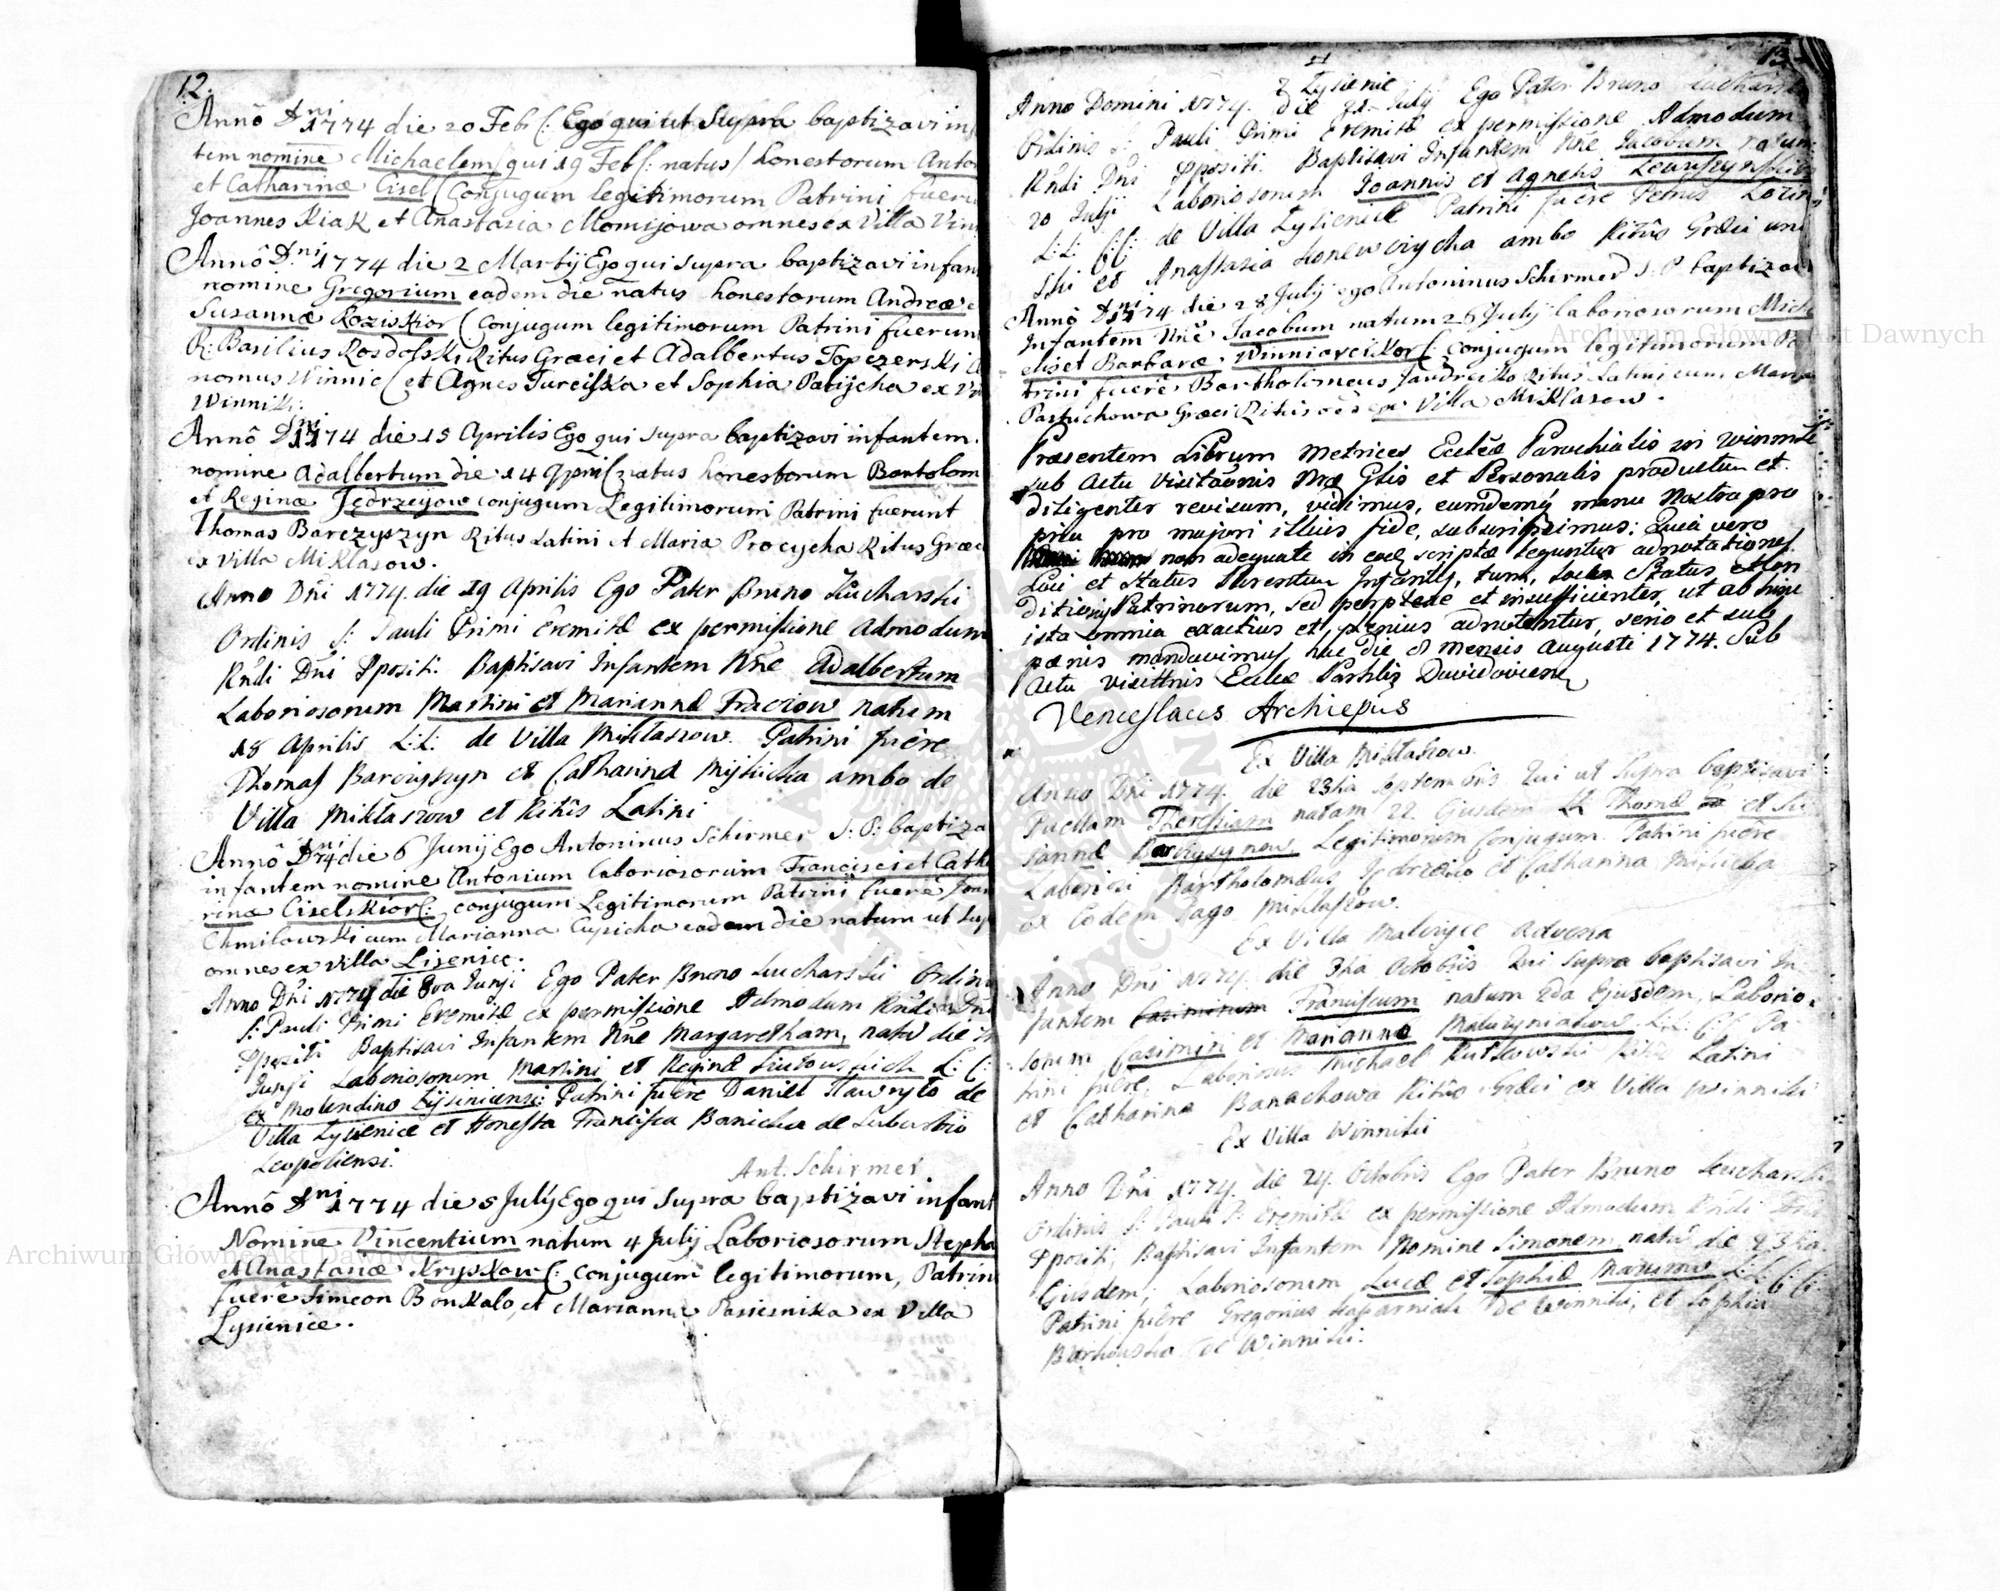 12.
Annô Dni 1774 die 20 Febr: Ego qui ut Supra baptizavi in
tem nomine Michaelem qui 19 Feb: natus honestorum Anton
et Catharinæ Cisel Conjugum legitimorum Patrini fueru
Joannes Kiak et Anastasia Momijowa omnes ex Villa Vin
Annô Dni 1774 die 2 Martij Ego qui supra baptizavi infan
nomine Gregorium eadem die natus honestorum Andreæ e
Susannæ Kozisktor Conjugum legitimorum Patrini fuerun
R: Basilius Rosdolski Ritus Græci et Adalbertus Topezerski
nomus Winnic et Agnes Turciska et Sophia Patijcha ex Vi
Winnik:
Annô Dni 1774 die 15 Aprilis Ego qui supra baptizavi infantem
nomine Adalbertum die 14 Apri natus honestorum Bartolom
et Reginæ Jędrzeyow conjugum Legitimorum Patrini fuerunt
Thomas Barczyszyn Ritus Latini et Maria Procycha Ritus Græc
ex Villa Miklasow.
Anno Dñi 1774. die 19 Aprilis Ego Pater Bruno Kucharski
Ordinis S: Pauli Primi Eremitæ ex permissione Admodum
Rñdi Dñi Ppositi. Baptisavi Infantem Nñe Adalbertum
Laboriosorum Martini et Mariannæ Fraczow natum
18 Aprilis L:L: de Villa Miklaszow. Patrini fuêre
Thomas Barczyszyn et Catharina Mijsicka ambo de
Villa Miklaszow et Ritûs Latini
Annô Dni 74 die 6 Junij Ego Antoninus Schirmer S: P: baptiza
infantem nomine Antonium laboriosorum Francisci et Catha
rinæ Ciselskior: conjugum Legitimorum Patrini fuerê Joan
Chmilowski cum Marianna Cupicha eadem die natum ut sup
omnes ex villa Lisenice.
Anno Dñi 1774 die 8va Junji Ego Pater Bruno Kucharski Ordin
S: Pauli Primi Eremitæ ex permissione Admodum Rñdi Dñi
Ppositi Baptisavi Infantem Nñe Margaretham, natã die
Junji Laboriosorum Martini et Reginæ L: C:
ex Molendino Lijsinicensi: Patrini fuêre Daniel Hawryło de
Villa Lysienice et Honesta Francisca Banicka de Suburbio
Leopoliensi.
Ant. Schirmer
Annô Dni 1774 die 5 Julij Ego qui supra baptizavi infant
Nomine Vincentium natum 4 Julij Laboriosorum Stepha
et Anastasiæ Kryskow: conjugum legitimorum, Patrin
fuerê Simeon Bonkalo, et Marianna Pasiesnika ex Villa
Lysienice.
13
Lysienic
Anno Domini 1774. die 21 July Ego Pater Bruno Kuchars
Ordinis S: Pauli Primi Eremitæ ex permissione Admodum
Rñdi Dñi Ppositi. Baptisavi Infantem Nñe Jacobum natum
20 Julji Laboriosorum Joannis et Agnetis
L:L: C:C: de Villa Lysienice Patrini fuêre Petrus
ski et Anastasia Konewczycha ambo Ritûs Græci uni
Annô Dni 1774 die 28 July ego Antoninus Schirmer S: P. baptizav
Infantem Nñe Jacobum natum 26 July laboriosorum Mich
elis et Barbaræ Winniarcikor: conjugum legitimorum Pa
trini fuerê Bartholomeus Jandrcisko Ritus Latini cum Maria
Pastuchowa Græci Ritus oẽs ex Villa Miklasow.
Præsentem Librum Metrices Ecclæ Parochialis in Winniki
sub Actu Visitaõnis Nræ Gñlis et Personalis productum et
diligenter revisum, vidimus, eumdemq manu Nostra pro
pria pro majori illius fide, subscripsimus: Quia vero
non adequate in eod scriptæ leguntur adnotationes
Loci et Status Parentum Infantis, tum, Loci Status Con
ditionis Patrinorum, sed perplexe et insufficienter, ut ab hinc
ista omnia exactius et plenius adnotentur, serio et sub
pænis mandavimus, hac die 8 Mensis Augusti 1774. Sub
Actu Visittnis Ecclæ Parhlis Davidovien
Venceslaus Archiepus
Ex Villa Miklaszow.
Anno Dñi 1774. die 23tia Septembris Qui ut Supra baptisavi
Puellam Theressiam natam 22. Ejusdem LL Thomæ et Su
sannæ Barczyszynow, Legitimorum Conjugum. Patrini fuêre
Laboriosi Bartholomæus Jędrzeiko et Catharina Mysicka
ex Eodem Pago Miklaszow.
Ex Villa Malczyce advena
Anno Dñi 1774. die 3tia Octobris Qui Supra baptisavi In
fantem Casimirum Franciscum natum 2da Ejusdem, Laborio
sorum Casimiri et Mariannæ L:L: C:C. Pa
trini fuêre, Laboriosus Michael Rutkowski Ritûs Latini
et Catharina Banachowa Ritûs Græci ex Villa Winniki
Ex Villa Winniki
Anno Dñi 1774. die 24. Octobris Ego Pater Bruno Kucharski
Ordinis S: Pauli P: Eremitæ ex permissione Admodum Rñdi Dñi
Ppositi, Baptisavi Infantem Nomine Simonem, natũ die 23tia
Ejusdem, Laboriosorum Lucæ et Sophiæ Marusow L:L: C:C:
Patrini fuêre Gregorius de Winniki, et Sophia
de Winniki.
Archiwum Główne Akt Dawnych
Archiwum Główne Akt Dawnych